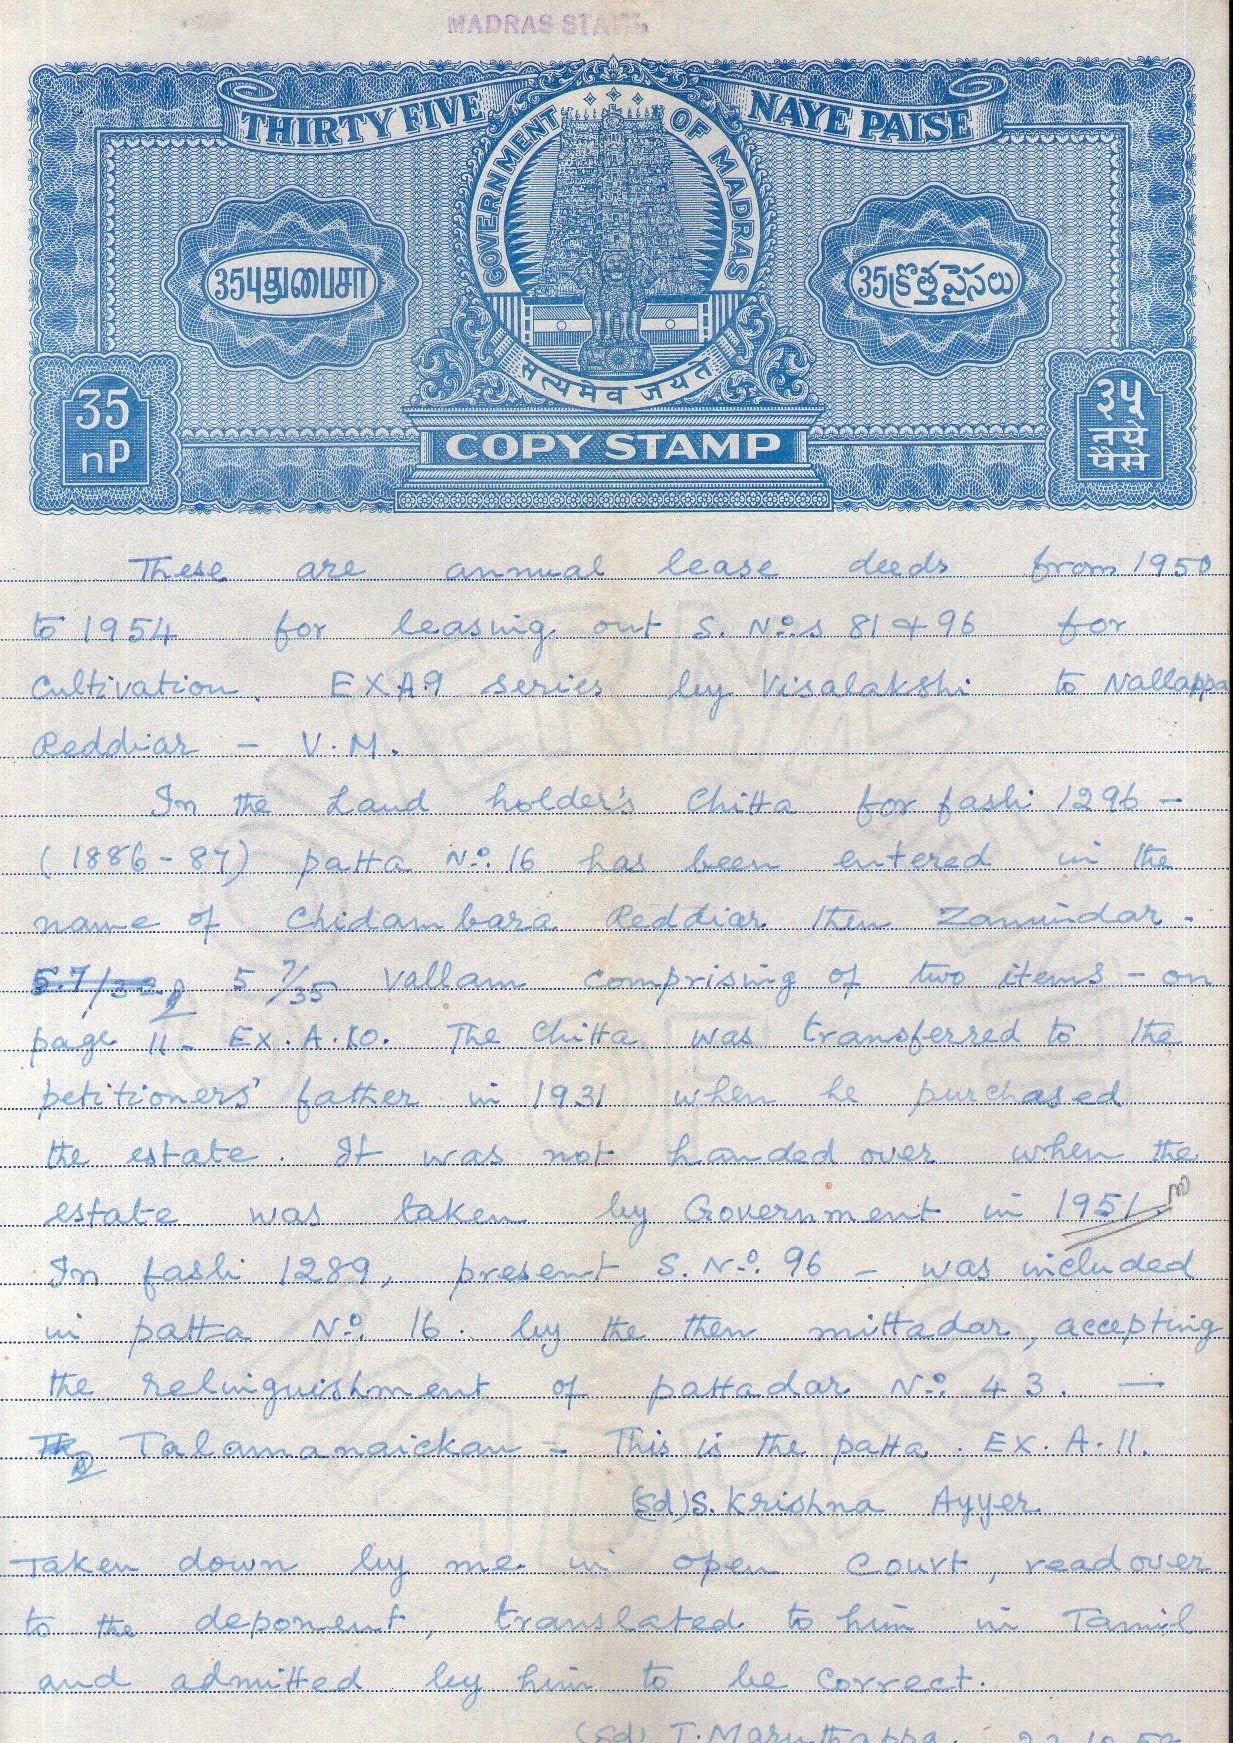 MADRAS STATE
THIRTY FIVE NAYE PAISE
GOVERNMENT OF MADRAS
35 புதுபைசா
35 క్రొత్తపైసలు
सत्यमेव जयते
35 nP
३५ नये पैसे
COPY STAMP
These are annual lease deeds from 1950
to 1954 for leasing out S. No.s 81 & 96 for
Cultivation. EXA9 series by Visalakshi to Nallappa
Reddiar – V.M.
In the Land holder's Chitta for fasli 1296 –
(1886-87) patta No. 16 has been entered in the
name of Chidambara Reddiar then Zamindar –
5 7/35 Vallam comprising of two items – on
page 11 – EX. A. 10. The Chitta was transferred to the
petitioners' father in 1931 when he purchased
the estate. It was not handed over when the
estate was taken by Government in 1951
In fasli 1289, present S. No. 96 – was included
in patta No. 16. by the then mittadar, accepting
the relinguishment of pattadar No. 43. —
Talamanaickan – This is the patta. EX. A. 11.
(Sd) S. Krishna Ayyer.
Taken down by me in open Court, readover
to the deponent, translated to him in Tamil
and admitted by him to be correct.
(Sd) T. Maruthappa.
GOVERNMENT OF MADRAS